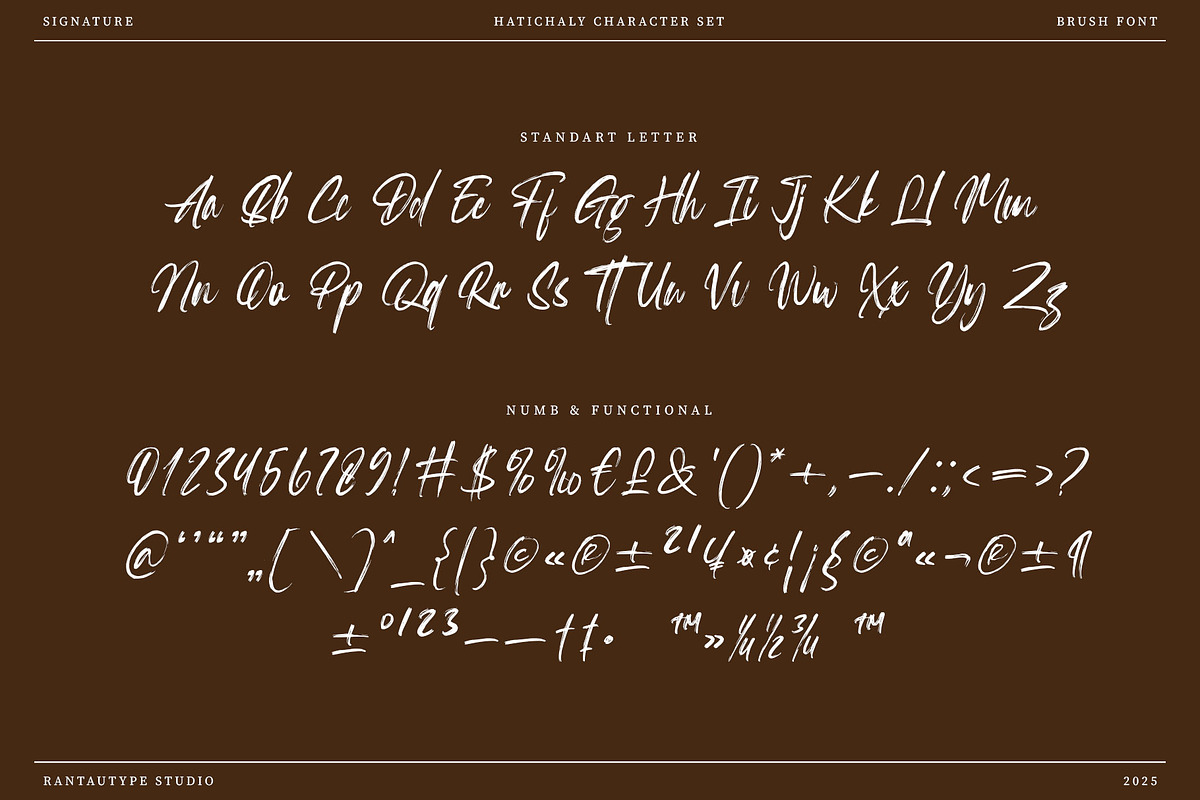 SIGNATURE
HATICHALY CHARACTER SET
BRUSH FONT
STANDART LETTER
Aa Bb Cc Dd Ee Ff Gg Hh Ii Jj Kk Ll Mm
Nn Oo Pp Qq Rr Ss Tt Uu Vv Ww Xx Yy Zz
NUMB & FUNCTIONAL
0123456789!#$%‰€£&'()*+,–./:;<=>?
@‘’“”„[\]^_{|}©«®±²¹¥¤¢¦¡§©ª«¬®±¶
±⁰¹²³–—†‡• ™»¼½¾ ™
RANTAUTYPE STUDIO
2025